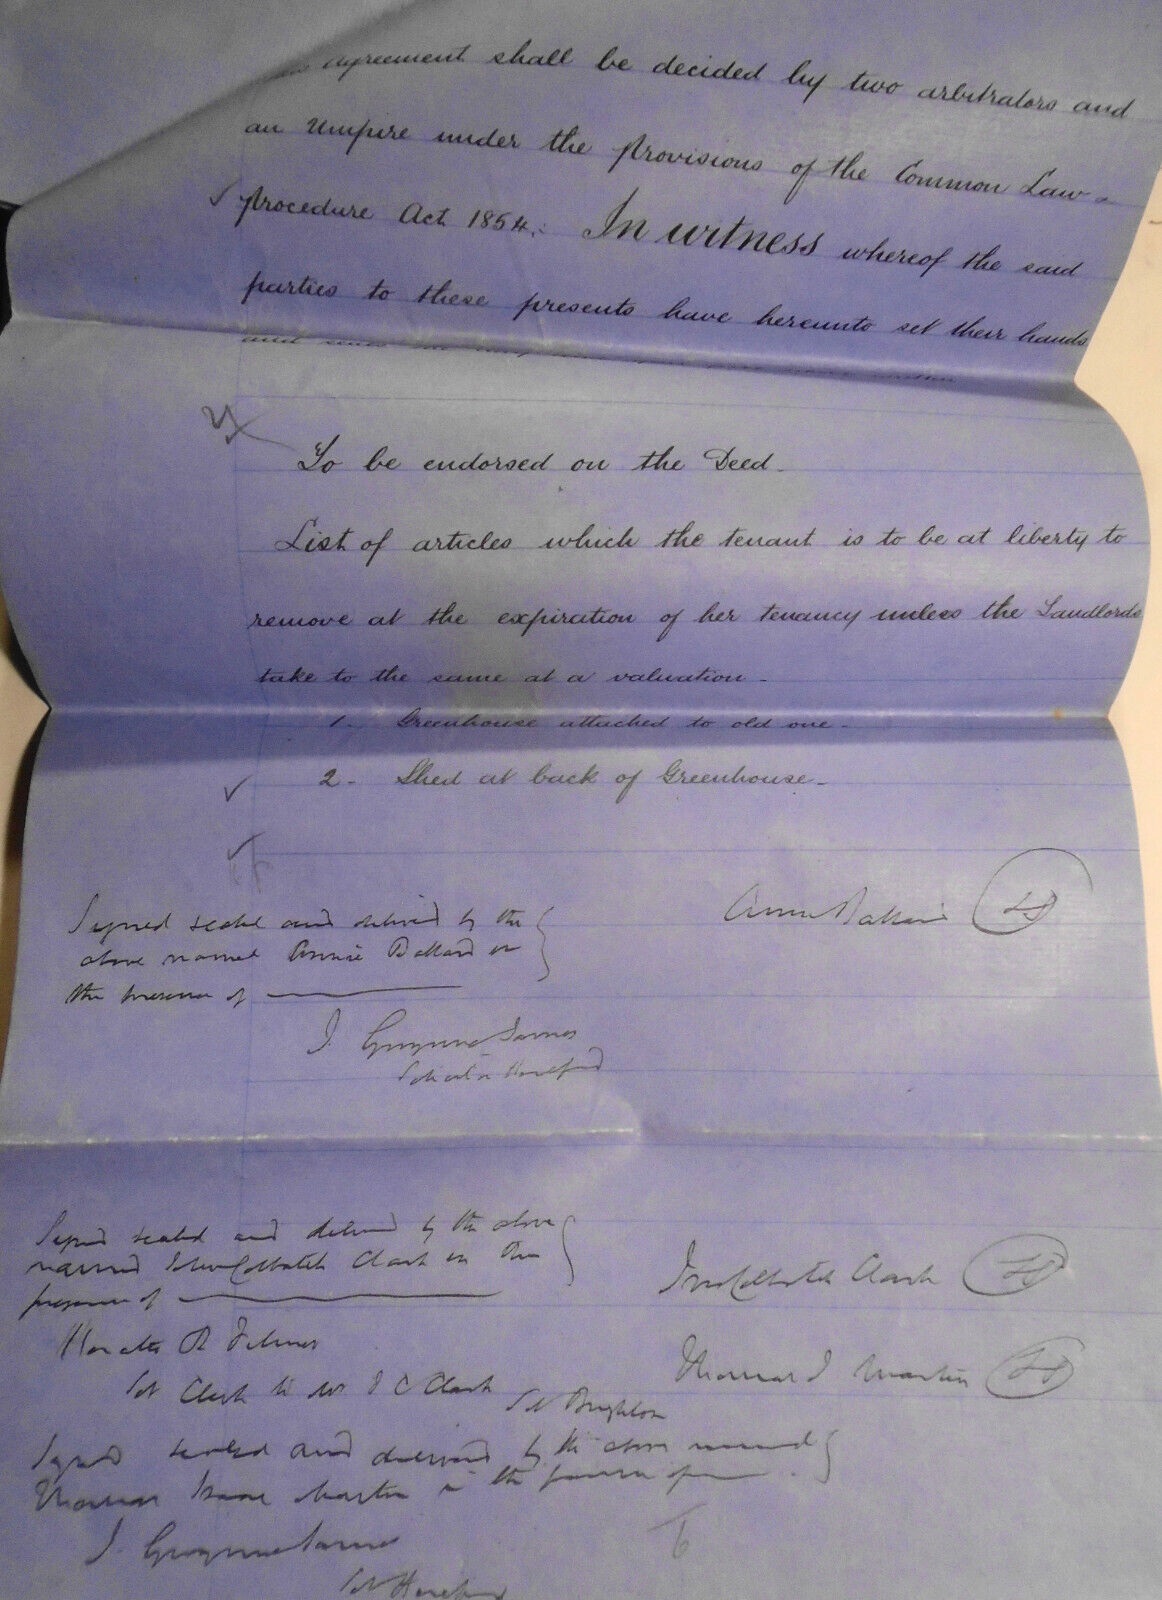 agreement shall be decided by two arbitrators and
an Umpire under the provisions of the Common Law
Procedure Act 1854. In witness whereof the said
parties to these presents have hereunto set their hands
and seals the
To be endorsed on the Deed.
List of articles which the tenant is to be at liberty to
remove at the expiration of her tenancy unless the Landlords
take to the same at a valuation.
1. Greenhouse attached to old one.
2. Shed at back of Greenhouse.
Signed sealed and delivered by the
above named Annie Ballard in
the presence of
Annie Ballard LS
J. Gwynne James
Solicitor Hereford
Signed sealed and delivered by the above
named John Colbatch Clark in the
presence of
Jno Colbatch Clark LS
Horatio R
Clerk to Mr J C Clark
Sol Brighton
Thomas I Martin LS
Signed sealed and delivered by the above named
Thomas Isaac Martin in the presence of
J. Gwynne James
Sol Hereford